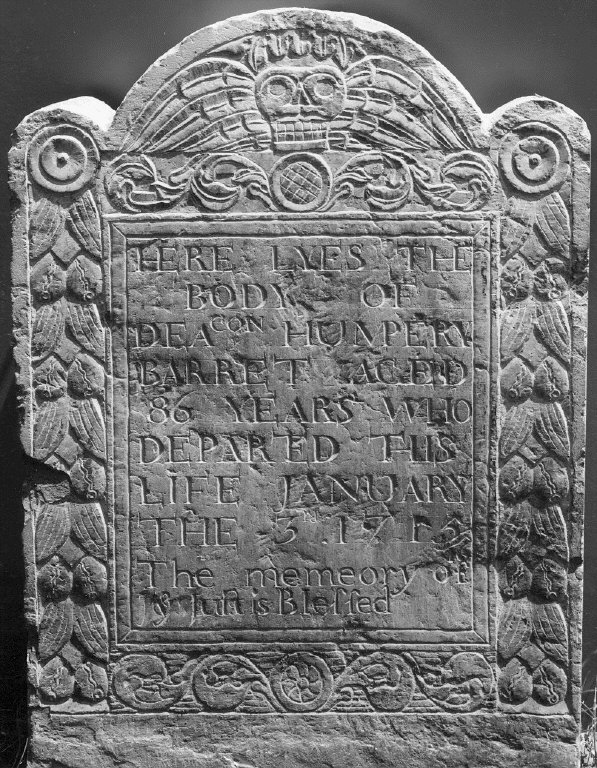 HERE LYES THE
BODY OF
DEACON HUMPERY
BARRET AGED
86 YEARS WHO
DEPARTED THIS
LIFE JANUARY
THE 3rd 171
The memeory of
yͤ Juſt is Bleſſed